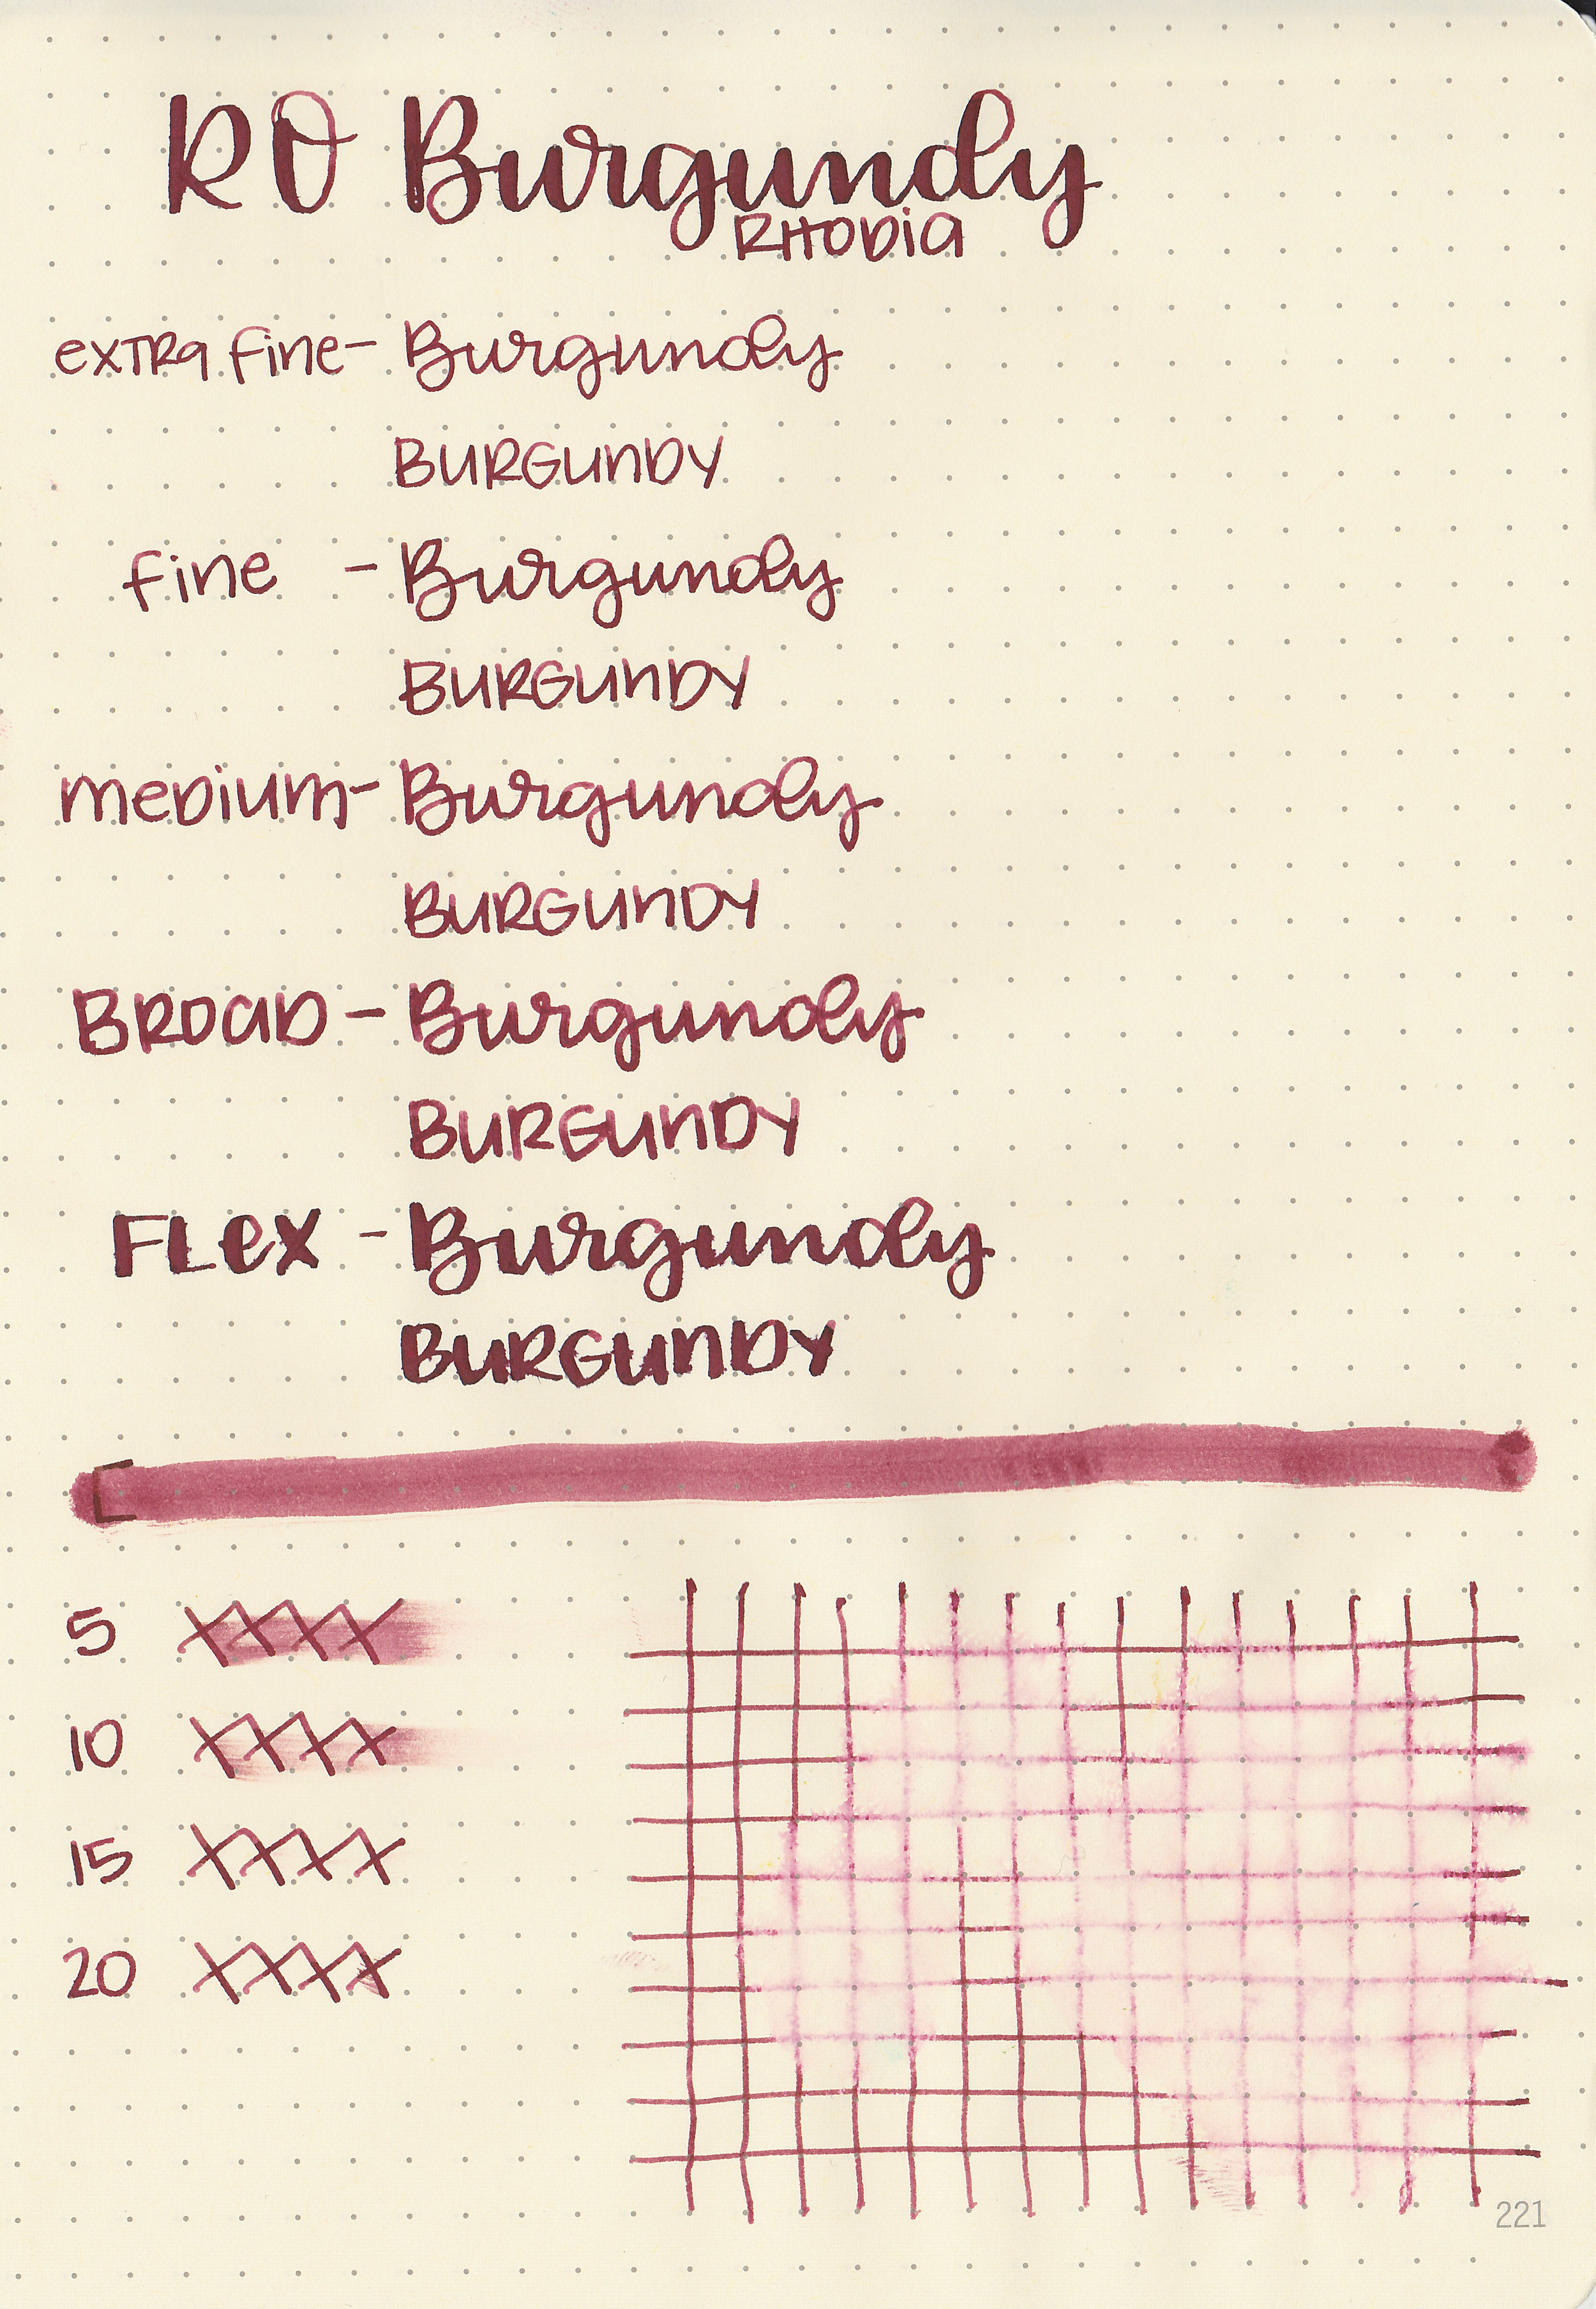 RO Burgundy
RHODIA
extra fine - Burgundy
BURGUNDY
fine - Burgundy
BURGUNDY
medium - Burgundy
BURGUNDY
BROAD - Burgundy
BURGUNDY
FLex - Burgundy
BURGUNDY
5
10
15
20
221